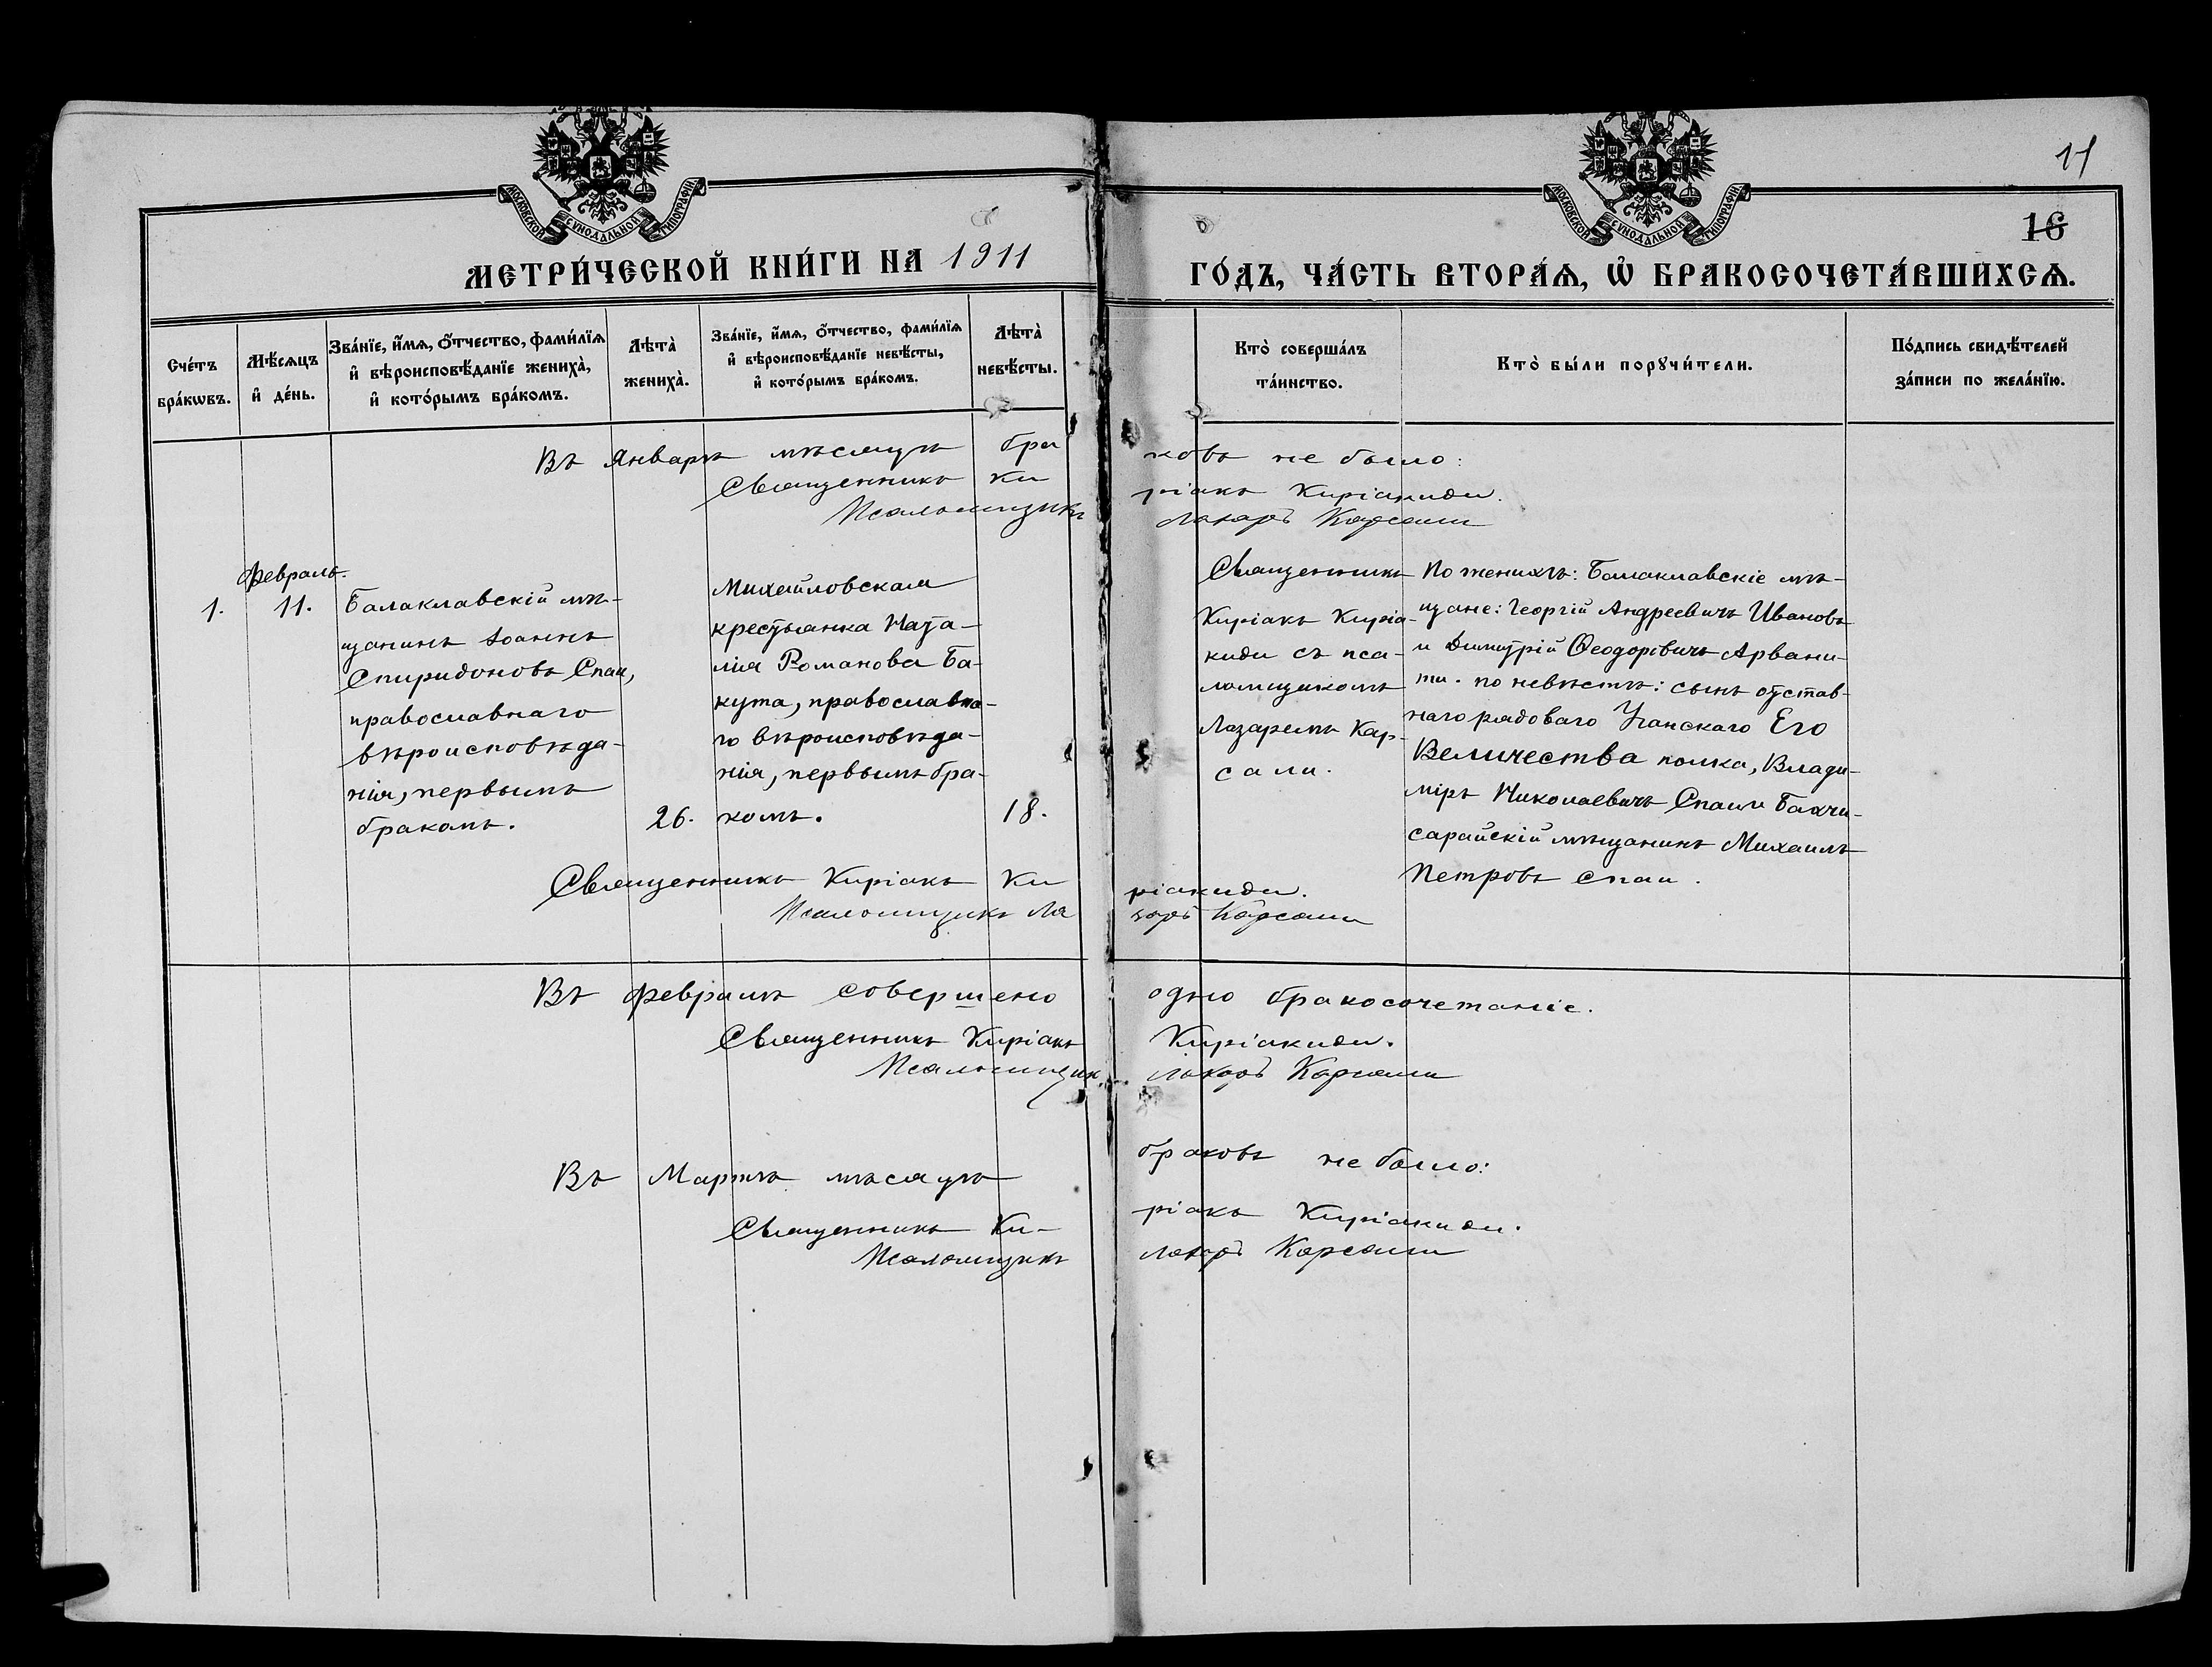 МОСКОВСКОЙ СѴНОДАЛЬНОЙ ТИПОГРАФІИ
МОСКОВСКОЙ СѴНОДАЛЬНОЙ ТИПОГРАФІИ
16
МЕТРИ́ЧЕСКОЙ КНИ́ГИ НА 1911 ГО́ДЪ, ЧА́СТЬ ВТОРА́Ѧ, Ѡ҆ БРАКОСОЧЕТА́ВШИХСѦ.
Сче́тъ бра́кѡвъ.
Мѣ́сѧцъ и҆ де́нь.
Зва́нїе, и҆́мѧ, ѻ҆́тчество, фами́лїѧ и҆ вѣроисповѣ́данїе жениха̀, и҆ кото́рымъ бра́комъ.
Лѣта̀ жениха̀.
Зва́нїе, и҆́мѧ, ѻ҆́тчество, фами́лїѧ и҆ вѣроисповѣ́данїе невѣ́сты, и҆ кото́рымъ бра́комъ.
Лѣта̀ невѣ́сты.
Кто̀ соверша́лъ та́инство.
Кто̀ бы́ли порꙋчи́тели.
По́дпись свидѣ́телей за́писи по жела́нїю.
Въ Январѣ мѣсяцѣ браковъ не было:
Священникъ Киріакъ Киріакиди.
Псаломщикъ Лазарь Карсали
Февраль.
1. 11.
Балаклавскій мѣ-
щанинъ Іоаннъ
Спиридоновъ Спаи,
православнаго
вѣроисповѣда-
нія, первымъ
бракомъ.
26.
Михайловская
крестьянка Ната-
лія Романова Ба-
кута, православна-
го вѣроисповѣда-
нія, первымъ бра-
комъ.
18.
Священникъ
Киріакъ Киріа-
киди съ пса-
ломщикомъ
Лазаремъ Кар-
сали.
По женихѣ: Балаклавскіе мѣ-
щане: Георгій Андреевичъ Ивановъ
и Димитрій Ѳеодоровичъ Арвани-
ти. по невѣстѣ: сынъ отстав-
наго рядоваго Уланскаго Его
Величества полка, Влади-
міръ Николаевичъ Спаи и Бахчи-
сарайскій мѣщанинъ Михаилъ
Петровъ Спаи.
Священникъ Киріакъ Киріакиди.
Псаломщикъ Лазарь Карсали
Въ Февралѣ совершено одно бракосочетаніе.
Священникъ Киріакъ Киріакиди.
Псаломщикъ Лазарь Карсали
Въ Мартѣ мѣсяцѣ браковъ не было:
Священникъ Ки-ріакъ Киріакиди.
Псаломщикъ Лазарь Карсали